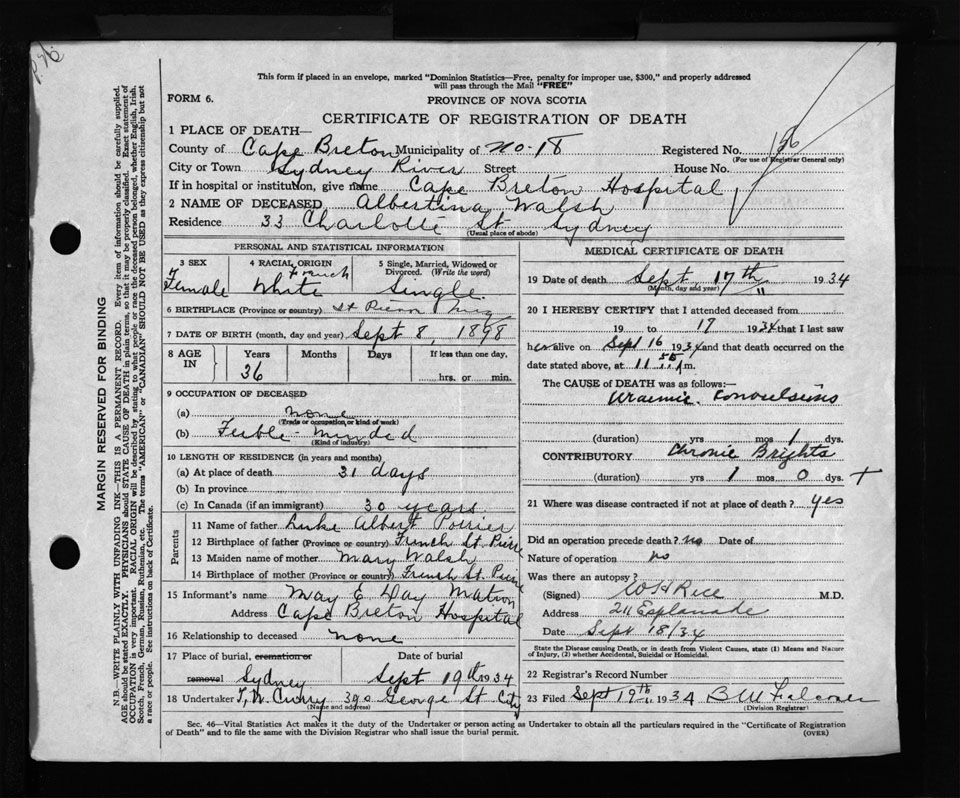 This form if placed in an envelope, marked "Dominion Statistics—Free, penalty for improper use, $300," and properly addressed
will pass through the Mail "FREE"
FORM 6.
PROVINCE OF NOVA SCOTIA
CERTIFICATE OF REGISTRATION OF DEATH
1 PLACE OF DEATH—
County of Cape Breton Municipality of No-18 Registered No. 156
(For use of Registrar General only)
City or Town Sydney River Street House No.
If in hospital or institution, give name Cape Breton Hospital
2 NAME OF DECEASED Albertina Walsh
Residence 33 Charlotte St Sydney
(Usual place of abode)
PERSONAL AND STATISTICAL INFORMATION
3 SEX 4 RACIAL ORIGIN 5 Single, Married, Widowed or
Divorced. (Write the word)
French
Female White Single
6 BIRTHPLACE (Province or country) St Pierre
7 DATE OF BIRTH (month, day and year) Sept 8, 1898
8 AGE IN Years Months Days If less than one day,
36 hrs. or min.
9 OCCUPATION OF DECEASED
(a) None
(Trade or occupation, or kind of work)
(b) Feeble-Minded
(Kind of industry)
10 LENGTH OF RESIDENCE (in years and months)
(a) At place of death 31 days
(b) In province
(c) In Canada (if an immigrant) 30 years
Parents
11 Name of father Luke Albert Poirier
12 Birthplace of father (Province or country) French St. Pierre
13 Maiden name of mother Mary Walsh
14 Birthplace of mother (Province or country) French St. Pierre
15 Informant's name May E Day Matron
Address Cape Breton Hospital
16 Relationship to deceased None
17 Place of burial, cremation or Date of burial
removal Sydney Sept 19th 1934
18 Undertaker T. W. Curry 390 George St. City
(Name and address)
MEDICAL CERTIFICATE OF DEATH
19 Date of death Sept 17th 1934
(Month, day and year) 11
20 I HEREBY CERTIFY that I attended deceased from
19 to 17 1934 that I last saw
her alive on Sept 16 1934 and that death occurred on the
date stated above, at 11.55 m.
The CAUSE OF DEATH was as follows:—
Uraemic Convulsions
(duration) yrs mos 1 dys.
CONTRIBUTORY Chronic Brights
(duration) yrs 1 mos 0 dys +
21 Where was disease contracted if not at place of death? yes
Did an operation precede death? no Date of
Nature of operation no
Was there an autopsy?
(Signed) W H Rice M.D.
Address 211 Esplanade
Date Sept 18/34
State the Disease causing Death, or in death from Violent Causes, state (1) Means and Nature
of Injury, (2) whether Accidental, Suicidal or Homicidal.
22 Registrar's Record Number
23 Filed Sept 19th 1934 B W Falconer
(Division Registrar)
Sec. 46—Vital Statistics Act makes it the duty of the Undertaker or person acting as Undertaker to obtain all the particulars required in the "Certificate of Registration
of Death" and to file the same with the Division Registrar who shall issue the burial permit. (OVER)
MARGIN RESERVED FOR BINDING
N.B.—WRITE PLAINLY WITH UNFADING INK—THIS IS A PERMANENT RECORD. Every item of information should be carefully supplied.
AGE should be stated EXACTLY. PHYSICIANS should STATE CAUSE OF DEATH in plain terms, so that it may be properly classified. Exact statement of
OCCUPATION is very important. RACIAL ORIGIN will be described by stating to what people or race the deceased person belonged, whether English, Irish,
Scotch, French, German, Russian, Ruthenian, etc. The terms "AMERICAN" or "CANADIAN" SHOULD NOT BE USED as they express citizenship but not
a race or people. See instructions on back of Certificate.